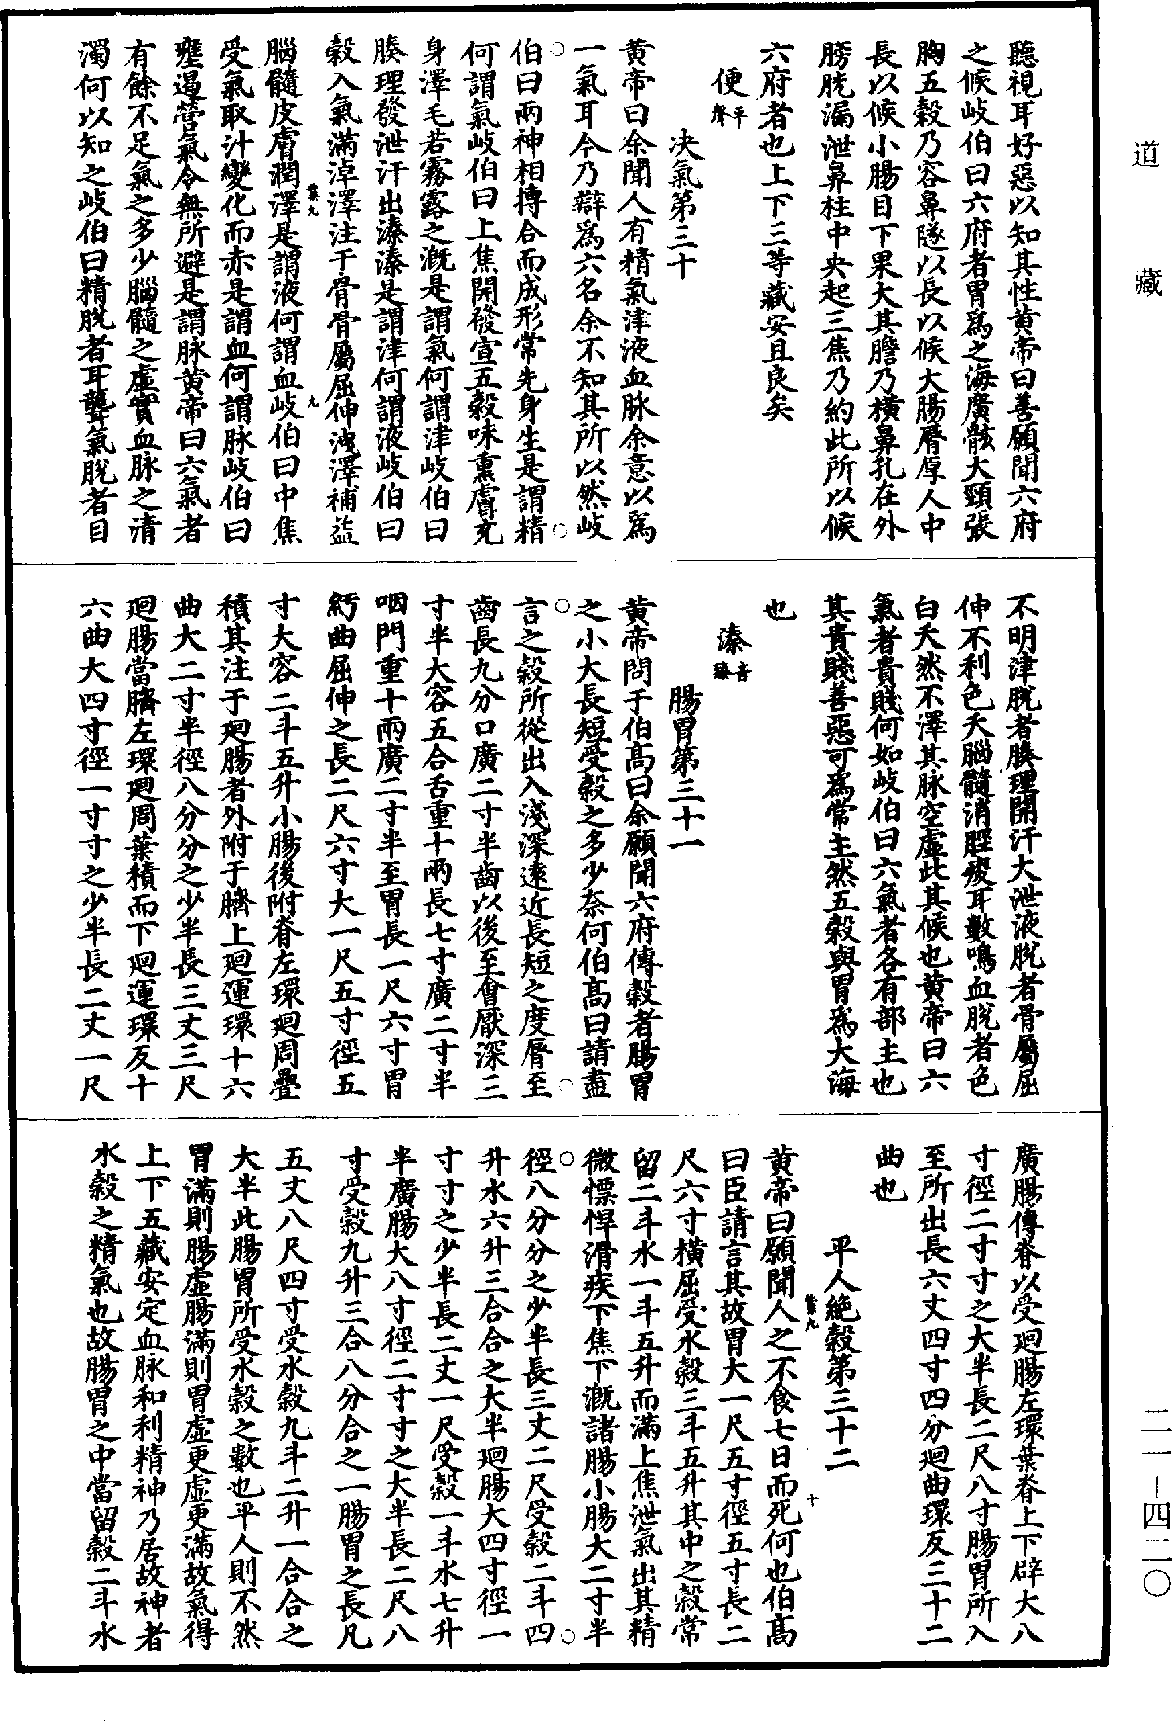 道藏
聽視耳好惡以知其性黃帝曰善願聞六府
之候岐伯曰六府者胃為之海廣骸大頸張
胸五穀乃容鼻隧以長以候大腸脣厚人中
長以候小腸目下果大其膽乃橫鼻孔在外
膀胱漏泄鼻柱中央起三焦乃約此所以候
六府者也上下三等藏安且良矣
便平聲
決氣第三十
黃帝曰余聞人有精氣津液血脉余意以為
一氣耳今乃辯為六名余不知其所以然岐
伯曰兩神相搏合而成形常先身生是謂精
何謂氣岐伯曰上焦開發宣五穀味熏膚充
身澤毛若霧露之溉是謂氣何謂津岐伯曰
腠理發泄汗出溱溱是謂津何謂液岐伯曰
穀入氣滿淖澤注于骨骨屬屈伸洩澤補益
腦髓皮膚潤澤是謂液何謂血岐伯曰中焦
受氣取汁變化而赤是謂血何謂脉岐伯曰
壅遏營氣令無所避是謂脉黃帝曰六氣者
有餘不足氣之多少腦髓之虛實血脉之清
濁何以知之岐伯曰精脫者耳聾氣脫者目
不明津脫者腠理開汗大泄液脫者骨屬屈
伸不利色夭腦髓消脛痠耳數鳴血脫者色
白夭然不澤其脉空虛此其候也黃帝曰六
氣者貴賤何如岐伯曰六氣者各有部主也
其貴賤善惡可為常主然五穀與胃為大海
也
溱音臻
腸胃第三十一
黃帝問于伯高曰余願聞六府傳穀者腸胃
之小大長短受穀之多少奈何伯高曰請盡
言之穀所從出入淺深遠近長短之度脣至
齒長九分口廣二寸半齒以後至會厭深三
寸半大容五合舌重十兩長七寸廣二寸半
咽門重十兩廣二寸半至胃長一尺六寸胃
紆曲屈伸之長二尺六寸大一尺五寸徑五
寸大容二斗五升小腸後附脊左環廻周疊
積其注于廻腸者外附于臍上廻運環十六
曲大二寸半徑八分分之少半長三丈三尺
廻腸當臍左環廻周葉積而下廻運環反十
六曲大四寸徑一寸寸之少半長二丈一尺
廣腸傳脊以受廻腸左環葉脊上下辟大八
寸徑二寸寸之大半長二尺八寸腸胃所入
至所出長六丈四寸四分廻曲環反三十二
曲也
平人絕穀第三十二
黃帝曰願聞人之不食七日而死何也伯高
曰臣請言其故胃大一尺五寸徑五寸長二
尺六寸橫屈受水穀三斗五升其中之穀常
留二斗水一斗五升而滿上焦泄氣出其精
微慓悍滑疾下焦下溉諸腸小腸大二寸半
徑八分分之少半長三丈二尺受穀二斗四
升水六升三合合之大半廻腸大四寸徑一
寸寸之少半長二丈一尺受穀一斗水七升
半廣腸大八寸徑二寸寸之大半長二尺八
寸受穀九升三合八分合之一腸胃之長凡
五丈八尺四寸受水穀九斗二升一合合之
大半此腸胃所受水穀之數也平人則不然
胃滿則腸虛腸滿則胃虛更虛更滿故氣得
上下五藏安定血脉和利精神乃居故神者
水穀之精氣也故腸胃之中當留穀二斗水
二一-四二〇